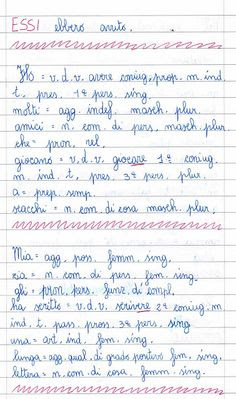 ESSI ebbero avuto.
Ho = v. d. v. avere coniug. prop. m. ind.
t. pres. 1ª pers. sing.
molti = agg. indef. masch. plur.
amici = n. com. di pers. masch. plur.
che = pron. rel.
giocano = v. d. v. giocare 1ª coniug.
m. ind. t. pres. 3ª pers. plur.
a = prep. semp.
scacchi = n. com. di cosa masch. plur.
Mia = agg. pos. femm. sing.
zia = n. com. di pers. fem. sing.
gli = pron. pers. funz. di compl.
ha scritto = v. d. v. scrivere 2ª coniug. m.
ind. t. pass. pross. 3ª pers. sing
una = art. ind. fem. sing.
lunga = agg. qual. di grado positivo fem. sing.
lettera = n. com. di cosa, femm. sing.